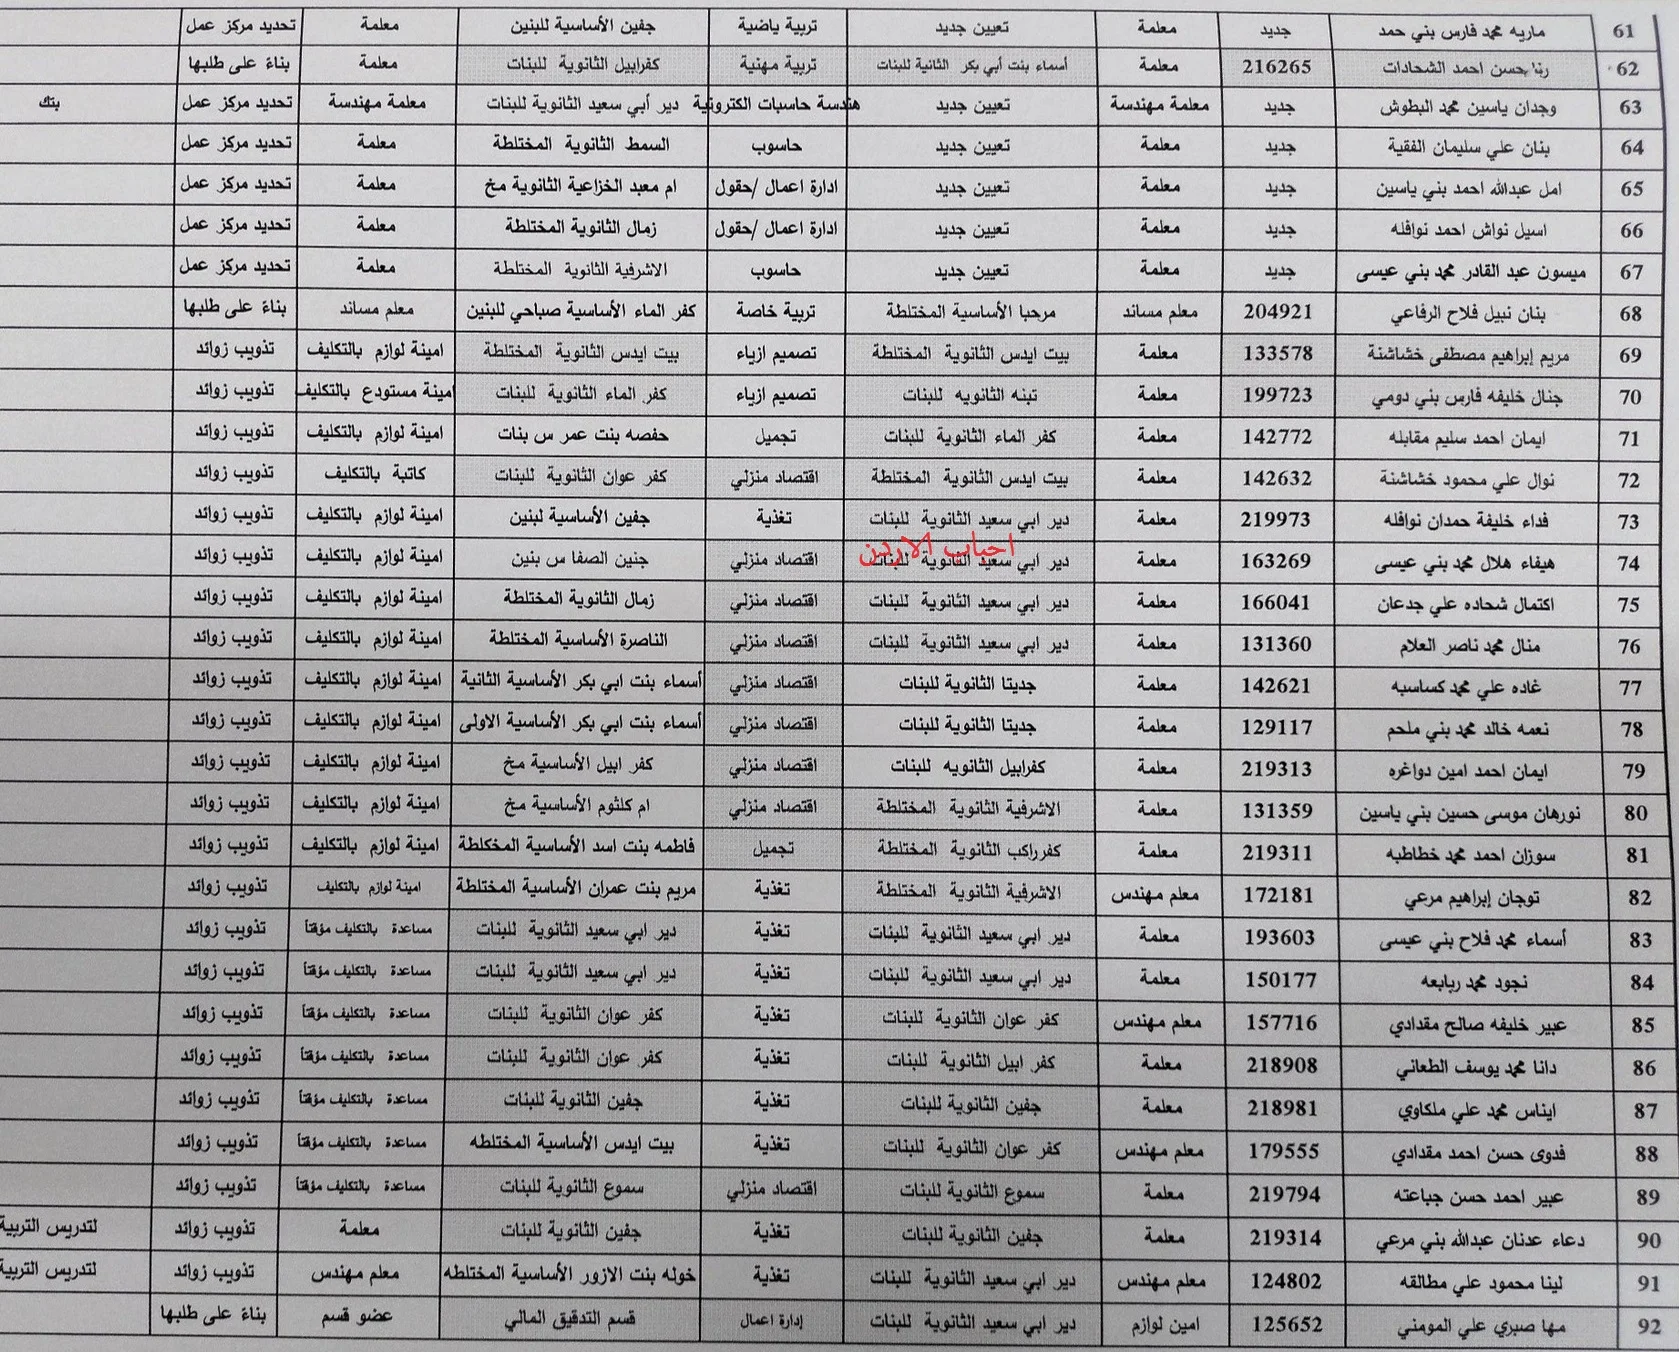 61 ماريه محمد فارس بني حمد جديد معلمة تعيين جديد تربية ياضية جفين الأساسية للبنين معلمة تحديد مركز عمل
62 رنا حسن احمد الشحادات 216265 معلمة أسماء بنت أبي بكر الثانية للبنات تربية مهنية كفرابيل الثانوية للبنات معلمة بناءً على طلبها
63 وجدان ياسين محمد البطوش جديد معلمة مهندسة تعيين جديد هندسة حاسبات الكترونية دير أبي سعيد الثانوية للبنات معلمة مهندسة تحديد مركز عمل بتك
64 بنان علي سليمان الفقية جديد معلمة تعيين جديد حاسوب السمط الثانوية المختلطة معلمة تحديد مركز عمل
65 امل عبدالله احمد بني ياسين جديد معلمة تعيين جديد ادارة اعمال /حقول ام معبد الخزاعية الثانوية مخ معلمة تحديد مركز عمل
66 اسيل نواش احمد نوافله جديد معلمة تعيين جديد ادارة اعمال /حقول زمال الثانوية المختلطة معلمة تحديد مركز عمل
67 ميسون عبد القادر محمد بني عيسى جديد معلمة تعيين جديد حاسوب الاشرفية الثانوية المختلطة معلمة تحديد مركز عمل
68 بنان نبيل فلاح الرفاعي 204921 معلم مساند مرحبا الأساسية المختلطة تربية خاصة كفر الماء الأساسية صباحي للبنين معلم مساند بناءً على طلبها
69 مريم إبراهيم مصطفى خشاشنة 133578 معلمة بيت ايدس الثانوية المختلطة تصميم ازياء بيت ايدس الثانوية المختلطة امينة لوازم بالتكليف تذويب زوائد
70 جنال خليفه فارس بني دومي 199723 معلمة تبنه الثانويه للبنات تصميم ازياء كفر الماء الثانوية للبنات امينة مستودع بالتكليف تذويب زوائد
71 ايمان احمد سليم مقابله 142772 معلمة كفر الماء الثانوية للبنات تجميل حفصه بنت عمر س بنات امينة لوازم بالتكليف تذويب زوائد
72 نوال علي محمود خشاشنة 142632 معلمة بيت ايدس الثانوية المختلطة اقتصاد منزلي كفر عوان الثانوية للبنات كاتبة بالتكليف تذويب زوائد
73 فداء خليفة حمدان نوافله 219973 معلمة دير ابي سعيد الثانوية للبنات تغذية جفين الأساسية لبنين امينة لوازم بالتكليف تذويب زوائد
احباب الاردن
74 هيفاء هلال محمد بني عيسى 163269 معلمة دير ابي سعيد الثانوية للبنات اقتصاد منزلي جنين الصفا س بنين امينة لوازم بالتكليف تذويب زوائد
75 اكتمال شحاده علي جدعان 166041 معلمة دير ابي سعيد الثانوية للبنات اقتصاد منزلي زمال الثانوية المختلطة امينة لوازم بالتكليف تذويب زوائد
76 منال محمد ناصر العلام 131360 معلمة دير ابي سعيد الثانوية للبنات اقتصاد منزلي الناصرة الأساسية المختلطة امينة لوازم بالتكليف تذويب زوائد
77 غاده علي محمد كساسبه 142621 معلمة جديتا الثانوية للبنات اقتصاد منزلي أسماء بنت ابي بكر الأساسية الثانية امينة لوازم بالتكليف تذويب زوائد
78 نعمه خالد محمد بني ملحم 129117 معلمة جديتا الثانوية للبنات اقتصاد منزلي أسماء بنت ابي بكر الأساسية الاولى امينة لوازم بالتكليف تذويب زوائد
79 ايمان احمد امين دواغره 219313 معلمة كفرابيل الثانويه للبنات اقتصاد منزلي كفر ابيل الأساسية مخ امينة لوازم بالتكليف تذويب زوائد
80 نورهان موسى حسين بني ياسين 131359 معلمة الاشرفية الثانوية المختلطة اقتصاد منزلي ام كلثوم الأساسية مخ امينة لوازم بالتكليف تذويب زوائد
81 سوزان احمد محمد خطاطبه 219311 معلمة كفرراكب الثانوية المختلطة تجميل فاطمه بنت اسد الأساسية المخكلطة امينة لوازم بالتكليف تذويب زوائد
82 توجان إبراهيم مرعي 172181 معلم مهندس الاشرفية الثانوية المختلطة تغذية مريم بنت عمران الأساسية المختلطة امينة لوازم بالتكليف تذويب زوائد
83 أسماء محمد فلاح بني عيسى 193603 معلمة دير ابي سعيد الثانوية للبنات تغذية دير ابي سعيد الثانوية للبنات مساعدة بالتكليف مؤقتاً تذويب زوائد
84 نجود محمد ربابعه 150177 معلمة دير ابي سعيد الثانوية للبنات تغذية دير ابي سعيد الثانوية للبنات مساعدة بالتكليف مؤقتاً تذويب زوائد
85 عبير خليفه صالح مقدادي 157716 معلم مهندس كفر عوان الثانوية للبنات تغذية كفر عوان الثانوية للبنات مساعدة بالتكليف مؤقتاً تذويب زوائد
86 دانا محمد يوسف الطعاني 218908 معلمة كفر ابيل الثانوية للبنات تغذية كفر عوان الثانوية للبنات مساعدة بالتكليف مؤقتاً تذويب زوائد
87 ايناس محمد علي ملكاوي 218981 معلمة جفين الثانوية للبنات تغذية جفين الثانوية للبنات مساعدة بالتكليف مؤقتاً تذويب زوائد
88 فدوى حسن احمد مقدادي 179555 معلم مهندس كفر عوان الثانوية للبنات تغذية بيت ايدس الأساسية المختلطه مساعدة بالتكليف مؤقتاً تذويب زوائد
89 عبير احمد حسن جباعته 219794 معلمة سموع الثانوية للبنات اقتصاد منزلي سموع الثانوية للبنات مساعدة بالتكليف مؤقتاً تذويب زوائد
90 دعاء عدنان عبدالله بني مرعي 219314 معلمة جفين الثانوية للبنات تغذية جفين الثانوية للبنات معلمة تذويب زوائد لتدريس التربية
91 لينا محمود علي مطالقه 124802 معلم مهندس دير ابي سعيد الثانوية للبنات تغذية خوله بنت الازور الأساسية المختلطه معلم مهندس تذويب زوائد لتدريس التربية
92 مها صبري علي المومني 125652 امين لوازم دير ابي سعيد الثانوية للبنات إدارة اعمال قسم التدقيق المالي عضو قسم بناءً على طلبها